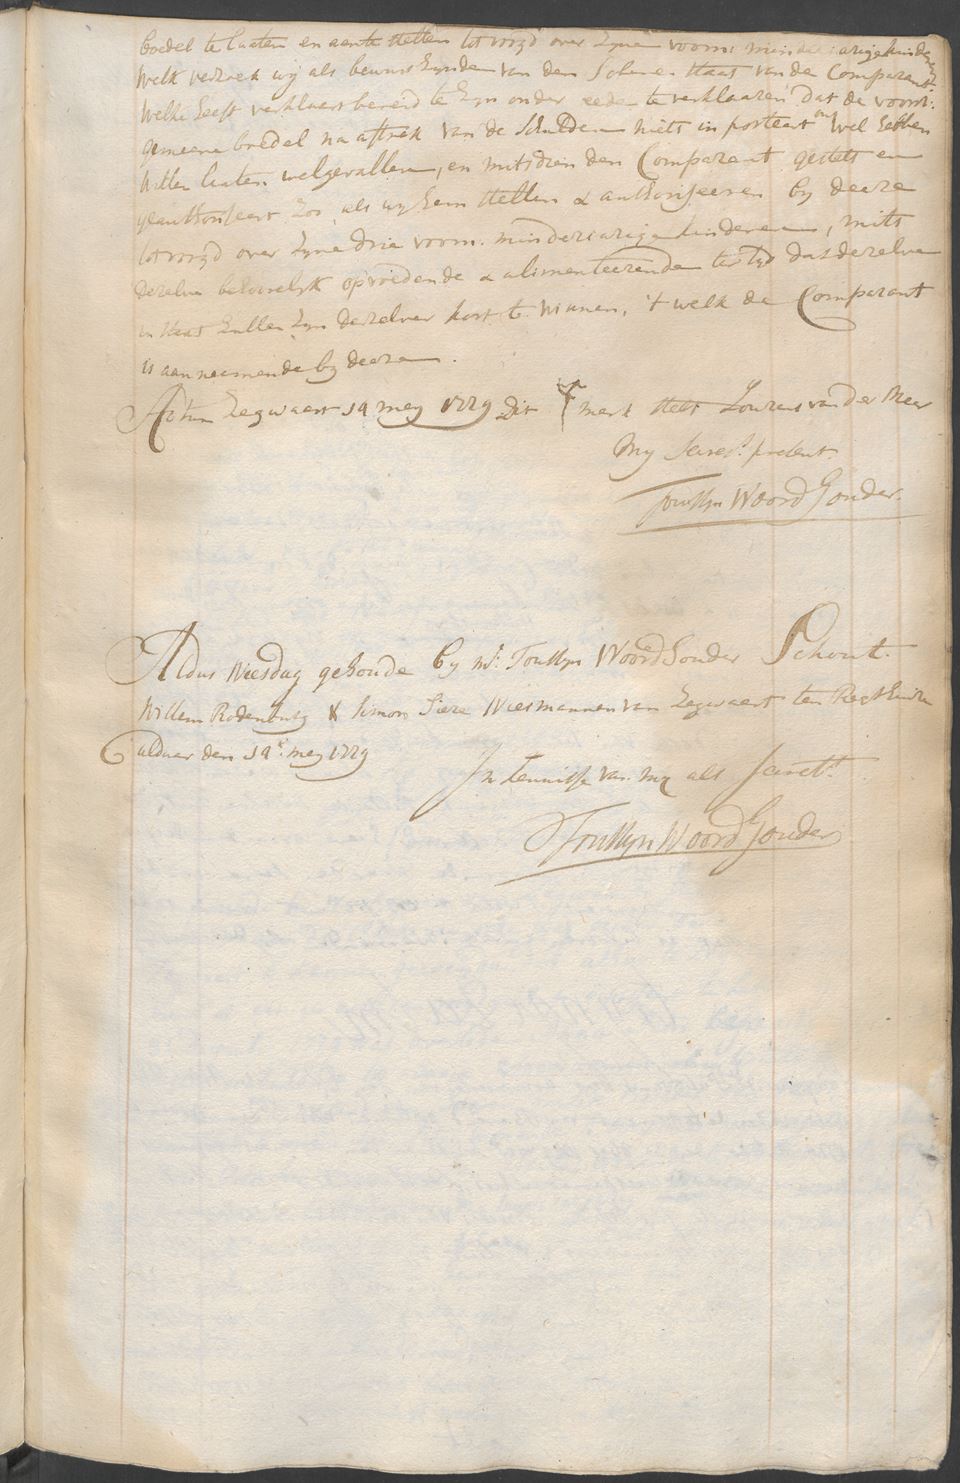 boedel te laaten en aan te stellen tot voogd over zyne voorn: minderjarige kinderen
Welk verzoek wy als bewust zynde van den Schere staat van de Comparant
Welke heeft verklaart bereid te zyn onder eede te verklaaren dat de voorsz:
gemeene boedel na aftrek van de Schulden niets importeert wel hebben
willen laaten welgevallen, en mitsdien den Comparant gestelt en
geauthoriseert zoo als wy hem stellen & authoriseeren by deeze
tot voogd over zyne drie voorn: minderjarige kinderen, mits
dezelve behoorlyk opvoedende & alimenteerende ter tyd dat dezelve
in staat zullen zyn derzelver kost te winnen, 't welk de Comparant
is aanneemende by deeze.
Actum Zegwaert 19 mey 1779 Dit merk stelt Lourens van der Meer
My Secrets. present.
Toussyn Woord Houder.
Aldus Wiesdag gehoude by Mr: Toussyn Woord Houder Schout.
Willem Rodenburg & Simon Siere Wiesmannen van Zegwaert ten Regthuize
aldaar den 19e. mey 1779
In kennisse van my als Secrets.
Toussyn Woord Houder